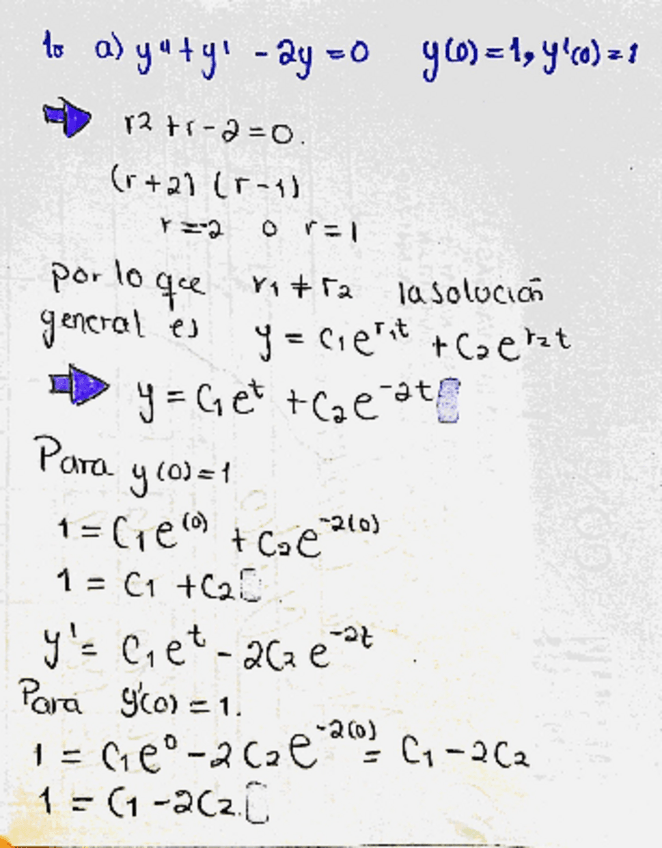 1. a) y'' + y' - 2y = 0 y(0) = 1, y'(0) = 1
r2 + r - 2 = 0.
(r + 2) (r - 1)
r = -2 o r = 1
por lo que r₁ ≠ r₂ la solución
general es y = C₁e^r₁t + C₂e^r₂t
y = C₁e^t + C₂e^-2t
Para y(0) = 1
1 = C₁e^(0) + C₂e^-2(0)
1 = C₁ + C₂
y' = C₁e^t - 2C₂e^-2t
Para y'(0) = 1.
1 = C₁e^0 - 2C₂e^-2(0) = C₁ - 2C₂
1 = C₁ - 2C₂.